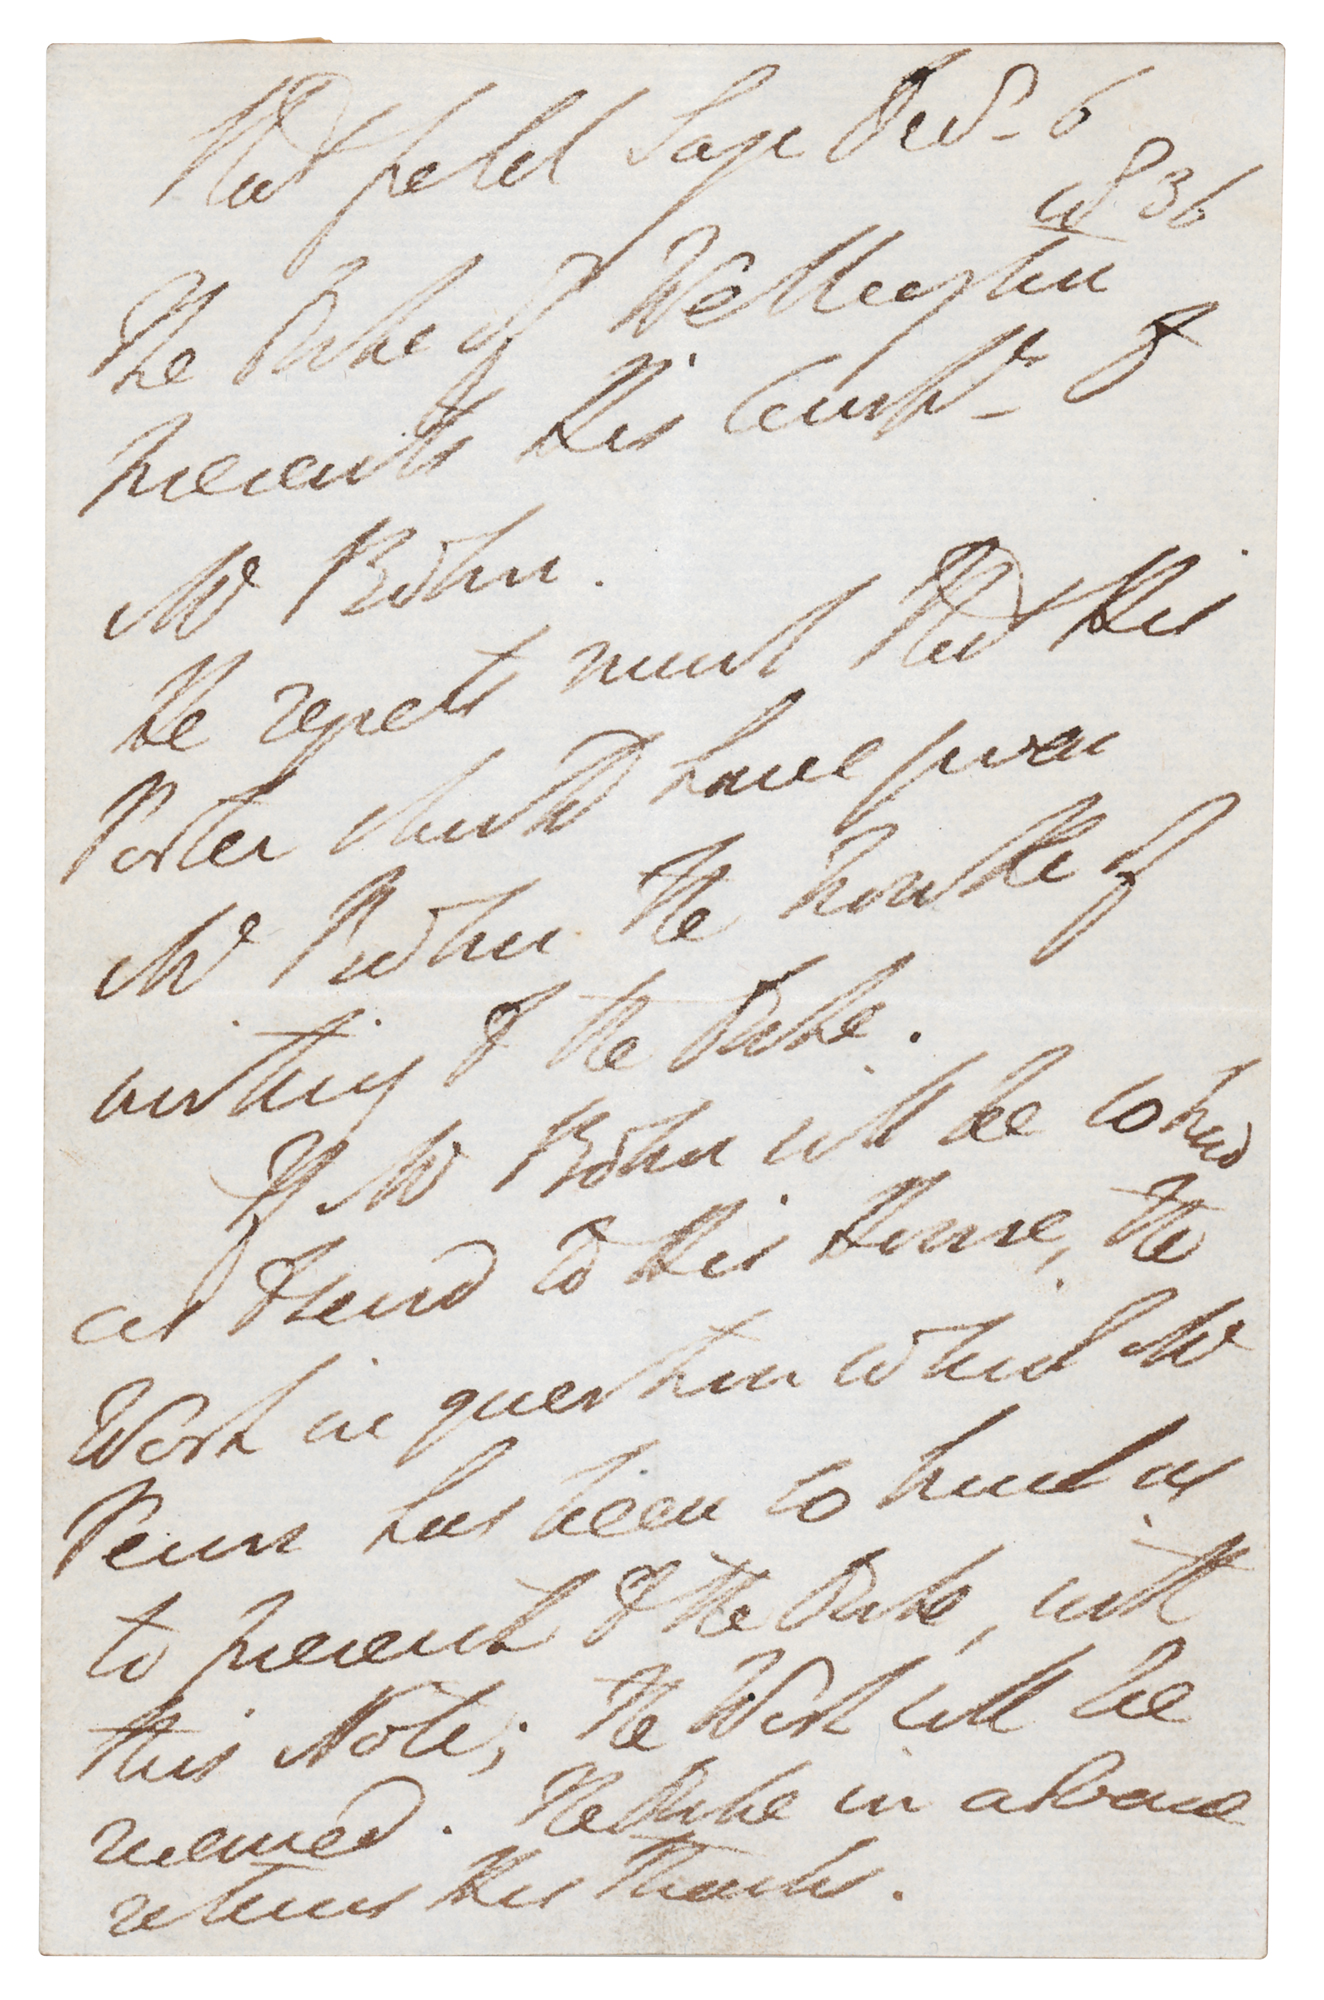 Strathfield Saye Decr. 6
1836
The Duke of Wellington
presents His Compts. to
Mr Bohn.
He regrets much that His
Porter should have given
Mr Bohn the trouble of
writing to the Duke.
If Mr Bohn will be so kind
as to send to His House, the
Work in question which Mr
Penn has been so kind as
to present to the Duke, with
this Note; the Work will be
received. The Duke in advance
returns His Thanks.